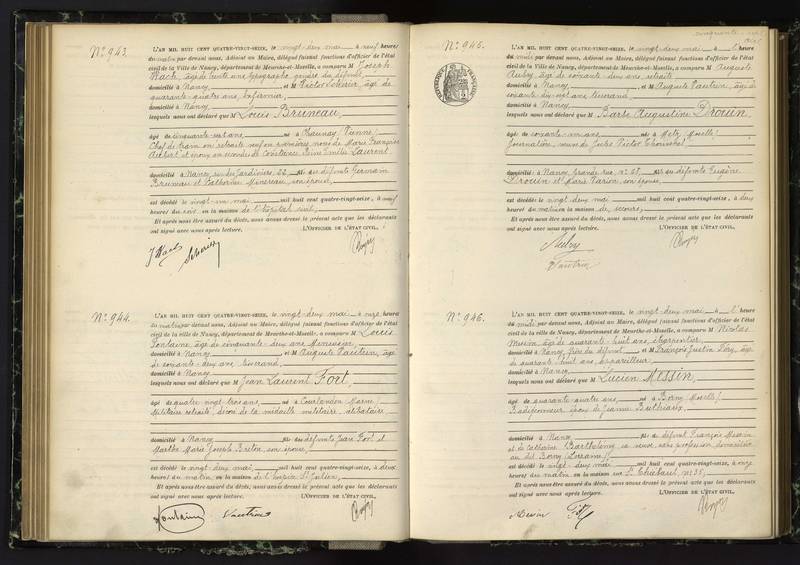 N° 943.
L'AN MIL HUIT CENT QUATRE-VINGT-SEIZE, le vingt-deux mai à neuf heures
du matin par devant nous, Adjoint au Maire, délégué faisant fonctions d'officier de l'état
civil de la Ville de Nancy, département de Meurthe-et-Moselle, a comparu M Joseph
âgé de trente ans, typographe, gendre du défunt,
domicilié à Nancy et M Victor âgé de
quarante-quatre ans, infirmier,
domicilié à Nancy
lesquels nous ont déclaré que M Louis Bruneau,
âgé de cinquante-sept ans né à (Vienne)
Chef de train en retraite, veuf en premières noces de Marie Françoise
et époux en secondes de Constance Laurent
domicilié à Nancy, rue des Jardiniers, fils de défunts Germain
Bruneau et Catherine son épouse,
est décédé le vingt-un mai mil huit cent quatre-vingt-seize, à neuf
heures du soir, en la maison de l'hôpital civil,
Et après nous être assuré du décès, nous avons dressé le présent acte que les déclarants
ont signé avec nous après lecture. L'OFFICIER DE L'ÉTAT CIVIL,
N° 944.
L'AN MIL HUIT CENT QUATRE-VINGT-SEIZE, le vingt-deux mai à onze heures
du matin par devant nous, Adjoint au Maire, délégué faisant fonctions d'officier de l'état
civil de la Ville de Nancy, département de Meurthe-et-Moselle, a comparu M Louis
Fontaine, âgé de cinquante-deux ans, Menuisier,
domicilié à Nancy et M Auguste Vautrin, âgé
de soixante-deux ans, tisserand,
domicilié à Nancy
lesquels nous ont déclaré que M Jean Laurent Fort,
âgé de quatre-vingt-trois ans né à Courlandon (Marne)
Militaire retraité, décoré de la médaille militaire, célibataire
domicilié à Nancy fils des défunts Jean Fort et
Marthe Marie Joseph Breton, son épouse,
est décédé le vingt-deux mai mil huit cent quatre-vingt-seize, à deux
heures du matin, en la maison de l'hospice St Julien,
Et après nous être assuré du décès, nous avons dressé le présent acte que les déclarants
ont signé avec nous après lecture. L'OFFICIER DE L'ÉTAT CIVIL,
Fontaine Vautrin
N° 945.
L'AN MIL HUIT CENT QUATRE-VINGT-SEIZE, le vingt-deux mai à 1 heure
du soir par devant nous, Adjoint au Maire, délégué faisant fonctions d'officier de l'état
civil de la Ville de Nancy, département de Meurthe-et-Moselle, a comparu M Auguste
Aubry, âgé de soixante-deux ans, retraité
domicilié à Nancy et M Auguste Vautrin, âgé de
soixante-dix-sept ans, tisserand
domicilié à Nancy
lesquels nous ont déclaré que M Barbe Augustine Drouin,
âgée de soixante-un ans née à Metz (Moselle)
Journalière, veuve de Jules Victor
domicilié à Nancy, Grande Rue, fille de défunts Eugène
Drouin et Marie son épouse,
est décédé le vingt-deux mai mil huit cent quatre-vingt-seize, à deux
heures du matin en la maison de secours,
Et après nous être assuré du décès, nous avons dressé le présent acte que les déclarants
ont signé avec nous après lecture. L'OFFICIER DE L'ÉTAT CIVIL,
Aubry
Vautrin
N° 946.
L'AN MIL HUIT CENT QUATRE-VINGT-SEIZE, le vingt-deux mai à 1 heure
du soir par devant nous, Adjoint au Maire, délégué faisant fonctions d'officier de l'état
civil de la ville de Nancy, département de Meurthe-et-Moselle, a comparu M Nicolas
Messin, âgé de quarante-huit ans, charpentier,
domicilié à Nancy, frère du défunt et M François Justin âgé
de quarante-huit ans, appareilleur
domicilié à Nancy
lesquels nous ont déclaré que M Lucien Messin,
âgé de quarante-quatre ans né à Borny (Moselle)
Badigeonneur, époux de Jeanne
domicilié à Nancy fils de défunt François Messin
et de Catherine Barthélémy, sa veuve, sans profession, domiciliée
au dit Borny (Lorraine)
est décédé le vingt-deux mai mil huit cent quatre-vingt-seize, à onze
heures du matin, en sa maison rue St Thiébaut, n° 35,
Et après nous être assuré du décès, nous avons dressé le présent acte que les déclarants
ont signé avec nous après lecture. L'OFFICIER DE L'ÉTAT CIVIL,
Messin